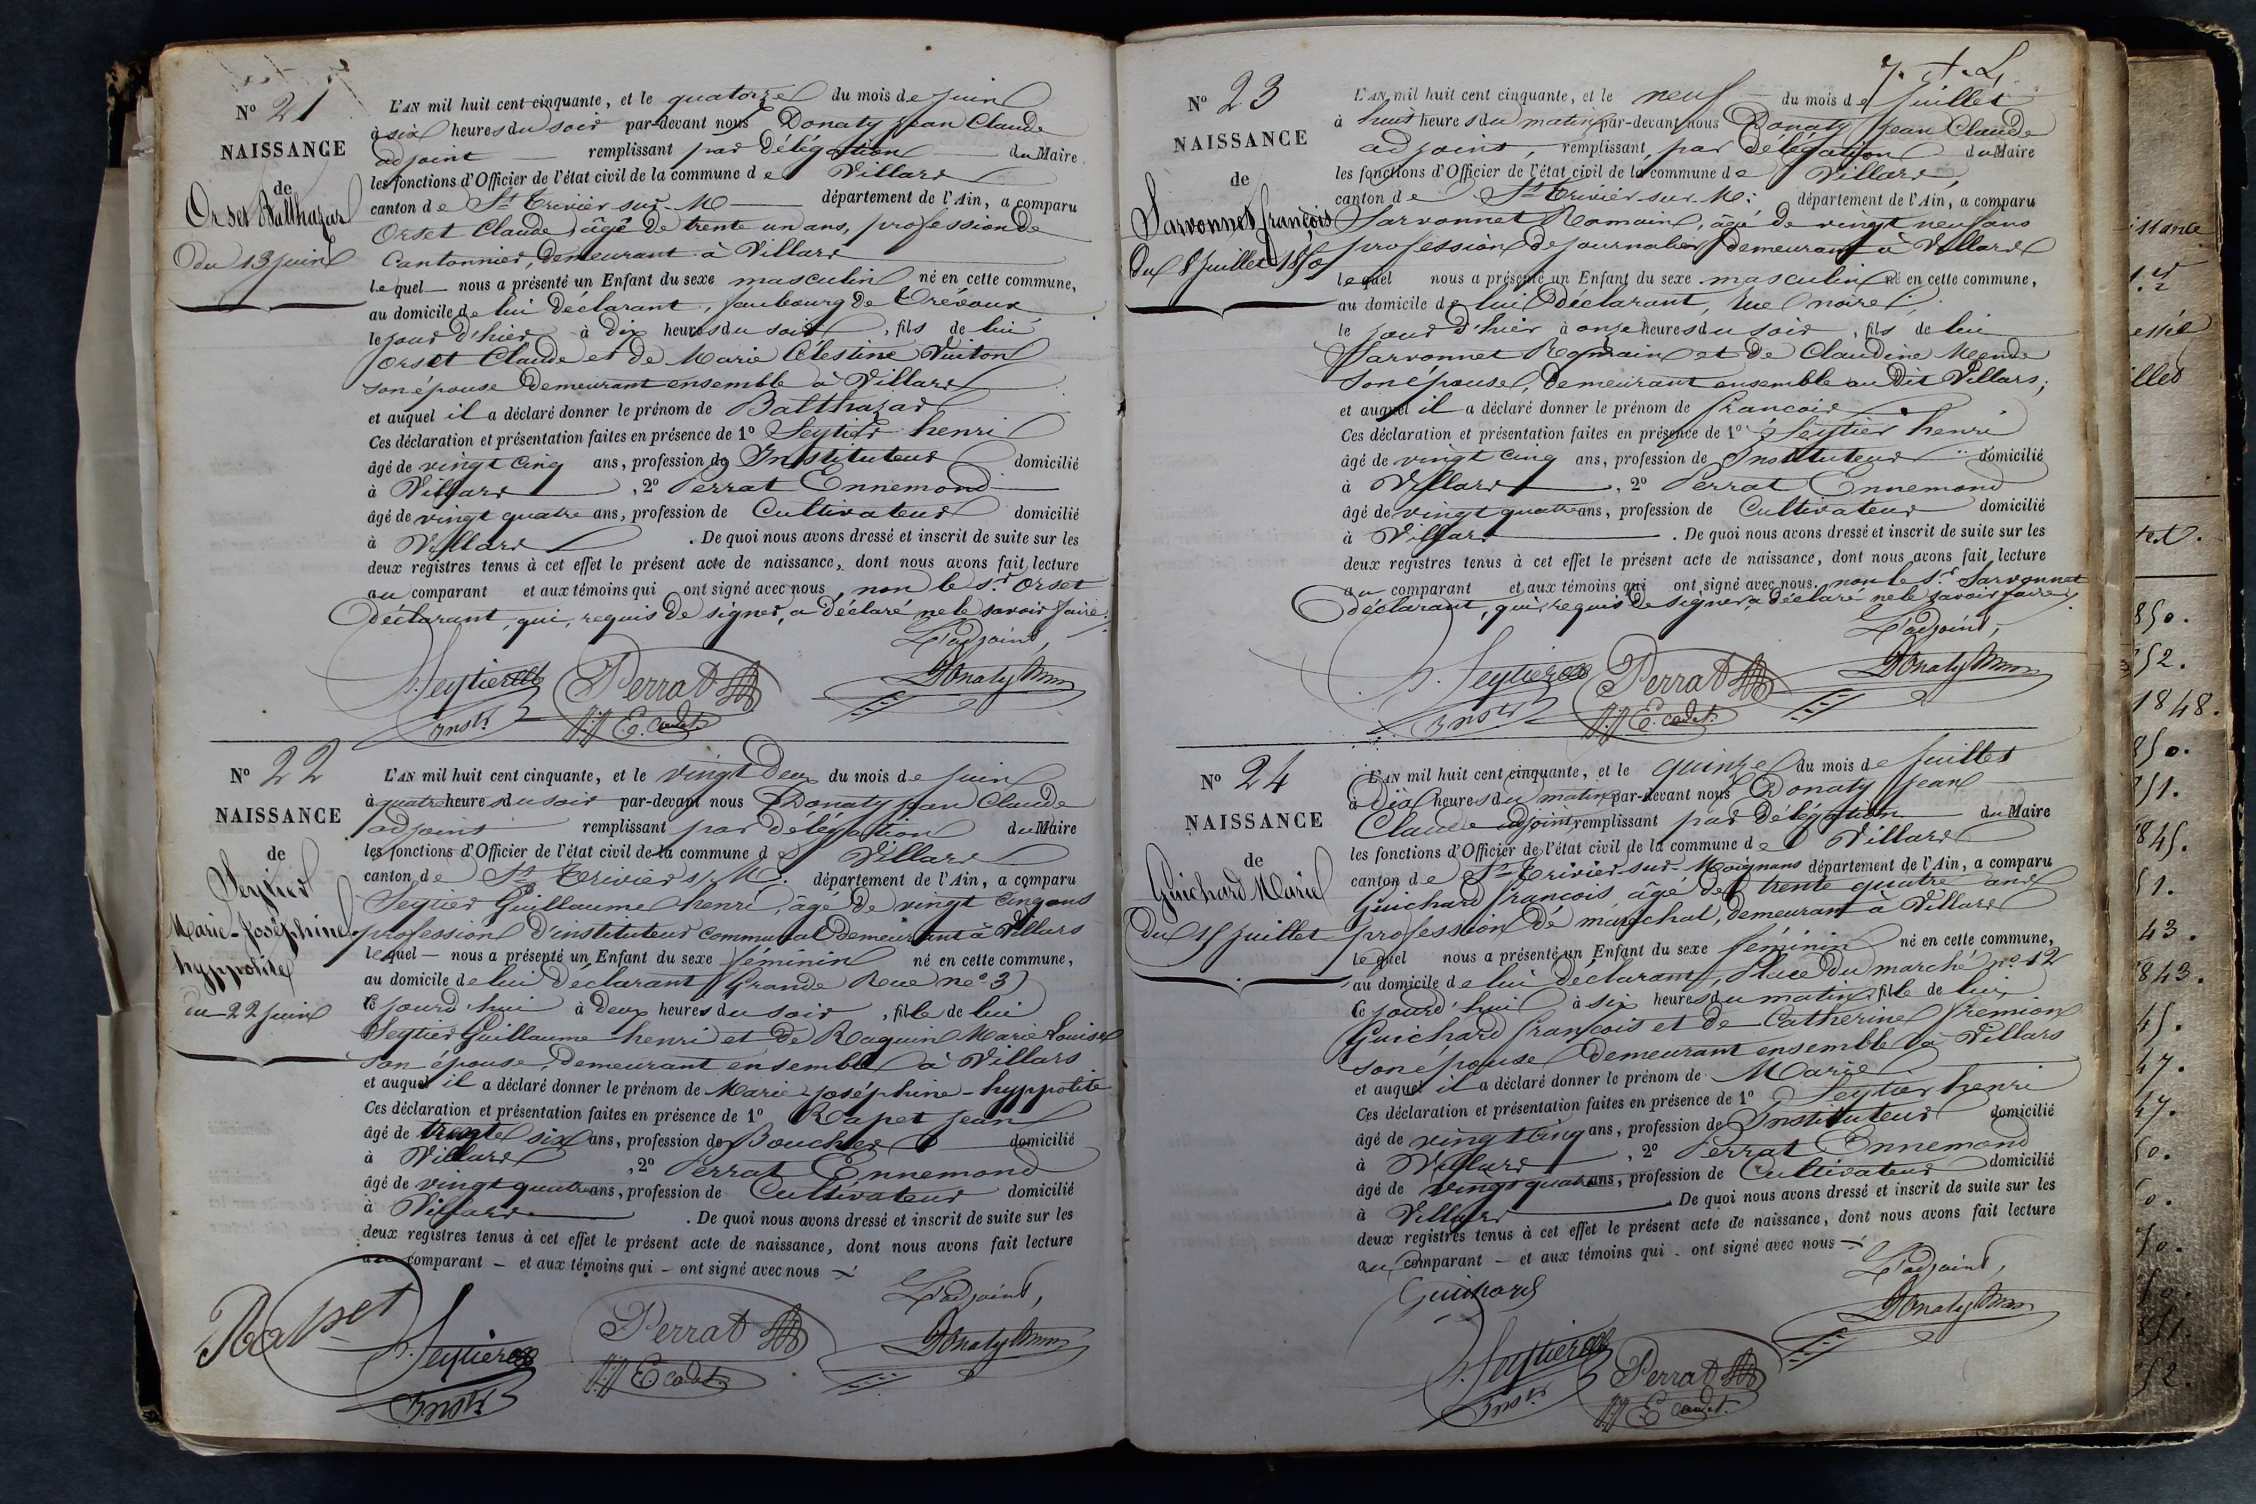 N° 21
NAISSANCE
de
Orset Balthazar
du 13 juin
L'AN mil huit cent cinquante, et le quatorze du mois de juin
à six heures du soir par-devant nous Donaty jean Claude
adjoint remplissant par délégation du Maire
les fonctions d'Officier de l'état civil de la commune de Villars
canton de St Trivier sur M département de l'Ain, a comparu
Orset Claude, âgé de trente un ans, profession de
Cantonnier, demeurant à Villars
lequel nous a présenté un Enfant du sexe masculin né en cette commune,
au domicile de lui déclarant, faubourg de Trévoux
le jour d'hier à dix heures du soir, fils de lui
Orset Claude et de Marie Célestine Vuiton
son épouse demeurant ensemble à Villars
et auquel il a déclaré donner le prénom de Balthazar
Ces déclaration et présentation faites en présence de 1° Seytier henri
âgé de vingt cinq ans, profession de Instituteur domicilié
à Villars, 2° Perrat Ennemond
âgé de vingt quatre ans, profession de Cultivateur domicilié
à Villars. De quoi nous avons dressé et inscrit de suite sur les
deux registres tenus à cet effet le présent acte de naissance, dont nous avons fait lecture
au comparant et aux témoins qui ont signé avec nous, non le Sr. Orset
déclarant, qui, requis de signer, a déclaré ne le savoir faire.
L'adjoint,
h. Seytier Perrat Donaty
Instr. E. cadet
N° 22
NAISSANCE
de
Seytier
Marie-Joséphine
hyppolite
du 22 juin
L'AN mil huit cent cinquante, et le vingt deux du mois de juin
à quatre heures du soir par-devant nous Donaty jean Claude
adjoint remplissant par délégation du Maire
les fonctions d'Officier de l'état civil de la commune de Villars
canton de St Trivier s/ M. département de l'Ain, a comparu
Seytier Guillaume henri, âgé de vingt cinq ans
profession d'instituteur communal demeurant à Villars
lequel nous a présenté un Enfant du sexe féminin né en cette commune,
au domicile de lui déclarant Grande Rue n° 3
ce jourd'hui à deux heures du soir, fille de lui
Seytier Guillaume henri et de Raquin Marie Louise
son épouse, demeurant ensemble à Villars
et auquel il a déclaré donner le prénom de Marie-joséphine-hyppolite
Ces déclaration et présentation faites en présence de 1° Rapet jean
âgé de trente six ans, profession de Boucher domicilié
à Villars, 2° Perrat Ennemond
âgé de vingt quatre ans, profession de Cultivateur domicilié
à Villars. De quoi nous avons dressé et inscrit de suite sur les
deux registres tenus à cet effet le présent acte de naissance, dont nous avons fait lecture
au comparant et aux témoins qui ont signé avec nous
L'adjoint,
Rapet h. Seytier Perrat Donaty
Instr. E. cadet
N° 23
NAISSANCE
de
Sarvonnet françois
du 8 juillet 1850
L'AN mil huit cent cinquante, et le neuf du mois de juillet
à huit heures du matin par-devant nous Donaty jean Claude
adjoint, remplissant par délégation du Maire
les fonctions d'Officier de l'état civil de la commune de Villars,
canton de St Trivier sur M. département de l'Ain, a comparu
Sarvonnet Romain, âgé de vingt neuf ans
profession de journalier demeurant à Villars
lequel nous a présenté un Enfant du sexe masculin né en cette commune,
au domicile de lui déclarant, rue noire,
le jour d'hier à onze heures du soir, fils de lui
Sarvonnet Romain et de Claudine Mende
son épouse, demeurant ensemble au dit Villars;
et auquel il a déclaré donner le prénom de françois
Ces déclaration et présentation faites en présence de 1° Seytier henri
âgé de vingt cinq ans, profession de Instituteur domicilié
à Villars, 2° Perrat Ennemond
âgé de vingt quatre ans, profession de Cultivateur domicilié
à Villars. De quoi nous avons dressé et inscrit de suite sur les
deux registres tenus à cet effet le présent acte de naissance, dont nous avons fait lecture
au comparant et aux témoins qui ont signé avec nous. non le Sr. Sarvonnet
déclarant, qui, requis de signer a déclaré ne le savoir faire
L'adjoint,
h. Seytier Perrat Donaty
Instr E. cadet.
N° 24
NAISSANCE
de
Guichard Marie
du 15 juillet
L'AN mil huit cent cinquante, et le quinze du mois de juillet
à dix heures du matin par-devant nous Donaty jean
Claude adjoint remplissant par délégation du Maire
les fonctions d'Officier de l'état civil de la commune de Villars
canton de St Trivier-sur-Moignans département de l'Ain, a comparu
Guichard françois âgé de trente quatre ans
profession de maréchal, demeurant à Villars
lequel nous a présenté un Enfant du sexe féminin né en cette commune,
au domicile de lui déclarant, Place du marché n° 12
ce jourd'hui à six heures du matin fille de lui,
Guichard françois et de Catherine fremion
son épouse demeurant ensemble à Villars
et auquel il a déclaré donner le prénom de Marie
Ces déclaration et présentation faites en présence de 1° Seytier henri
âgé de vingt cinq ans, profession de Instituteur domicilié
à Villars, 2° Perrat Ennemond
âgé de vingt quatre ans, profession de Cultivateur domicilié
à Villars De quoi nous avons dressé et inscrit de suite sur les
deux registres tenus à cet effet le présent acte de naissance, dont nous avons fait lecture
au comparant et aux témoins qui ont signé avec nous
L'adjoint,
Guichard Donaty
h. Seytier Perrat
Instr. E. cadet.
850.
1848.
851.
845.
843.
851.